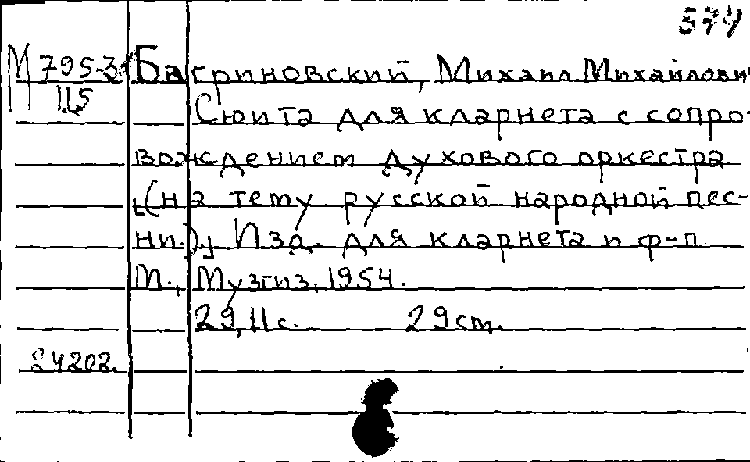 574
М 795-3 Багриновский, Михаил Михайлович
115 Сюита для кларнета с сопро-
вождением духового оркестра
(на тему русской народной пес-
ни.). Изд. для кларнета и ф-п
М., Музгиз, 1954.
29, 11 с. 29 cm.
24202.